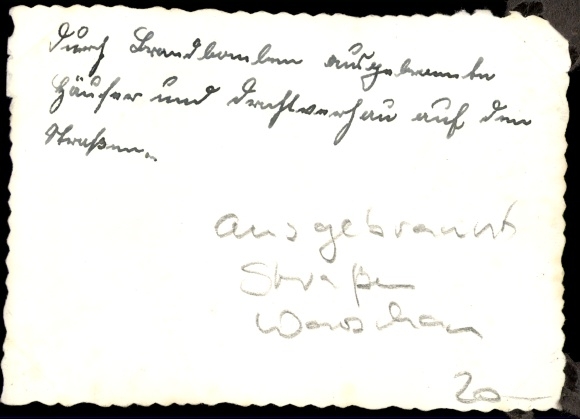 Durch Brandbomben ausgebrannte
Häuser und Drahtverhau auf den
Straßen.
Ausgebrannt
Straßen
Warschau
20.—